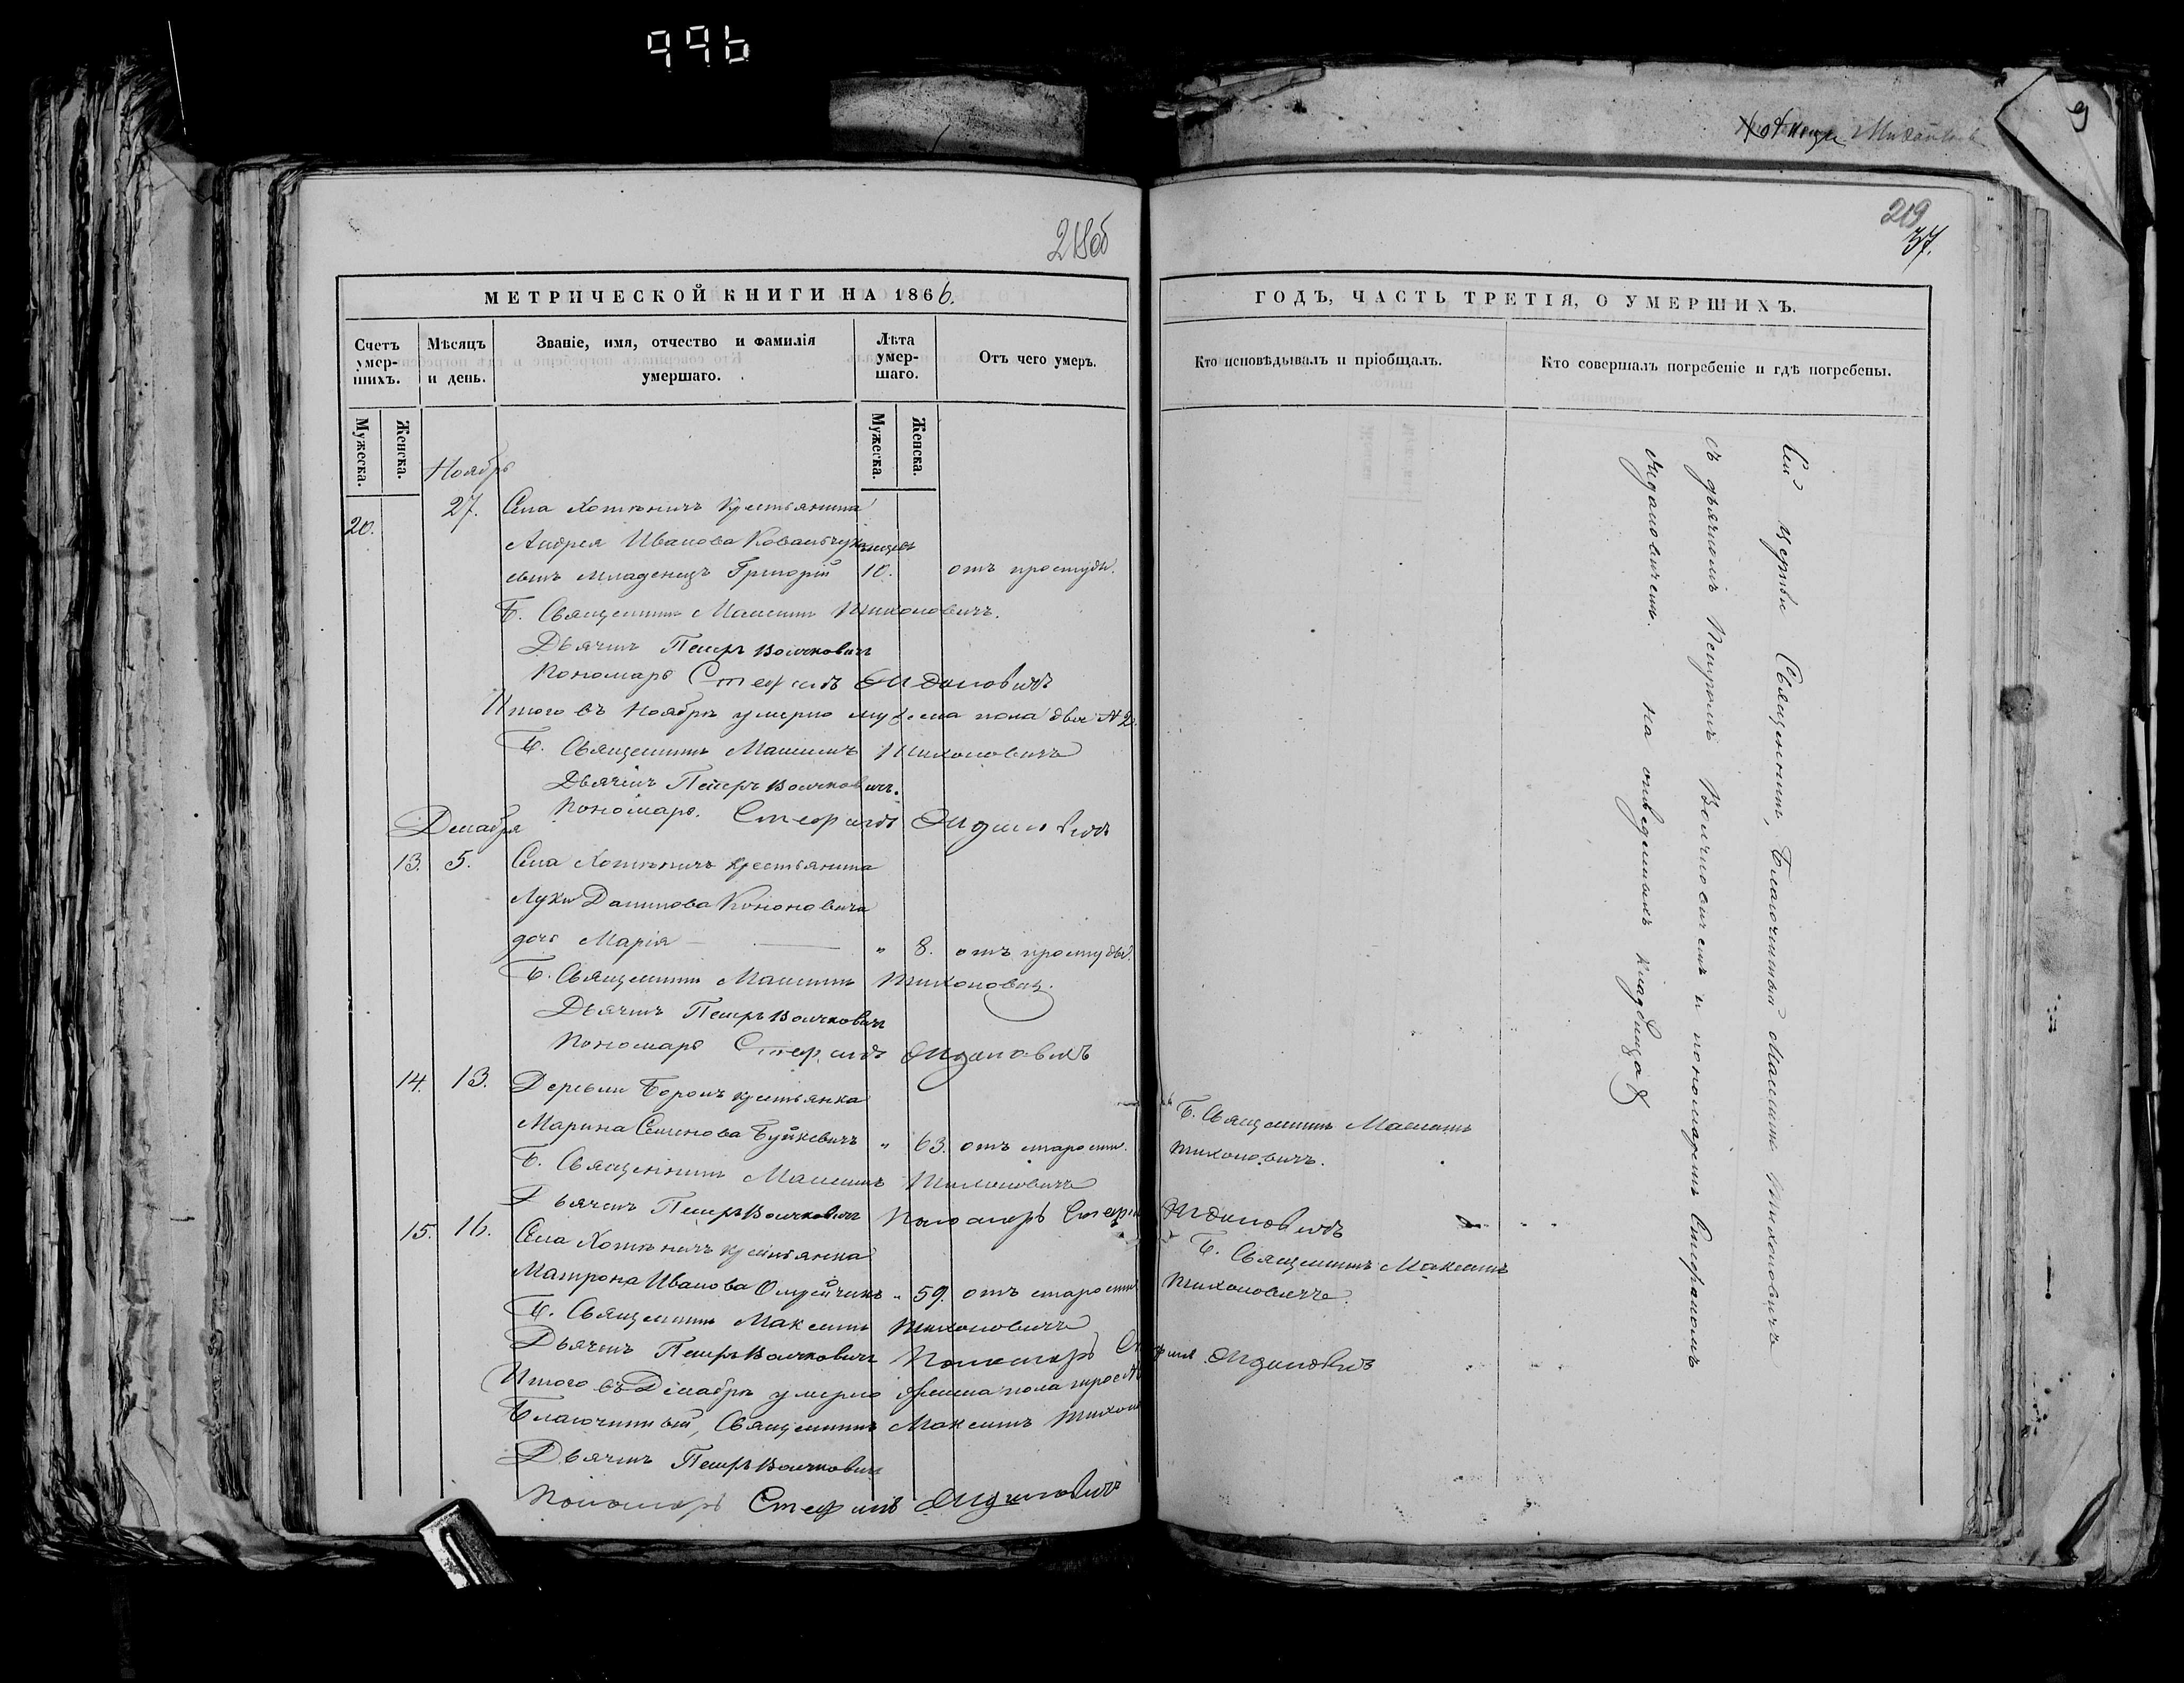 996
Хотыницк. Михайловск
9
218об
219
37.
МЕТРИЧЕСКОЙ КНИГИ НА 1866.
Счетъ умер-шихъ.
Мѣсяцъ и день.
Званіе, имя, отчество и фамилія умершаго.
Лѣта умер-шаго.
Отъ чего умеръ.
Мужеска.
Женска.
Мужеска.
Женска.
Ноябрь
20. 27. Села Хотыничъ Крестьянина
Андрея Иванова Ковальчука
сынъ младенецъ Григорій 10. отъ простуды.
Б. Священникъ Максимъ Тихоновичъ.
Дьячекъ Петръ Волчковичъ
Пономарь Стефанъ Жидановичъ
Итого въ Ноябрѣ умерло мужеска пола два № 2.
Б. Священникъ Максимъ Тихоновичъ
Дьячекъ Петръ Волчковичъ.
Пономарь. Стефанъ Жидановичъ
Декабря
13. 5. Села Хотыничъ крестьянина
Луки Данилова Кононовича
дочь Марія — „ 8. отъ простуды.
Б. Священникъ Максимъ Тихоновичъ.
Дьячекъ Петръ Волчковичъ
Пономарь Стефанъ Жидановичъ
14. 13. Деревни Боромъ крестьянка
Марина Семенова Буйкевичъ „ 63. отъ старости.
Б. Священникъ Максимъ Тихоновичъ
Дьячекъ Петръ Волчковичъ Пономарь Стефанъ Жидановичъ
15. 16. Села Хотыничъ крестьянка
Матрона Иванова „ 59. отъ старости
Б. Священникъ Максимъ Тихоновичъ
Дьячекъ Петръ Волчковичъ Пономарь Стефанъ Жидановичъ
Итого въ Декабрѣ умерло женска пола трое
Благочинный, Священникъ Максимъ Тихон
Дьячекъ Петръ Волчковичъ
Пономарь Стефанъ Жидановичъ
ГОДЪ, ЧАСТЬ ТРЕТІЯ, О УМЕРШИХЪ.
Кто исповѣдывалъ и пріобщалъ.
Кто совершалъ погребеніе и гдѣ погребены.
Б. Священникъ Максимъ
Тихоновичъ.
Б. Священникъ Максимъ
Тихоновичъ.
Сей церкви Священникъ, Благочинный Максимъ Тихоновичъ
съ дьячкомъ Петромъ Волчковичемъ и пономаремъ Стефаномъ
Жидановичемъ. на отведенныхъ кладбищахъ